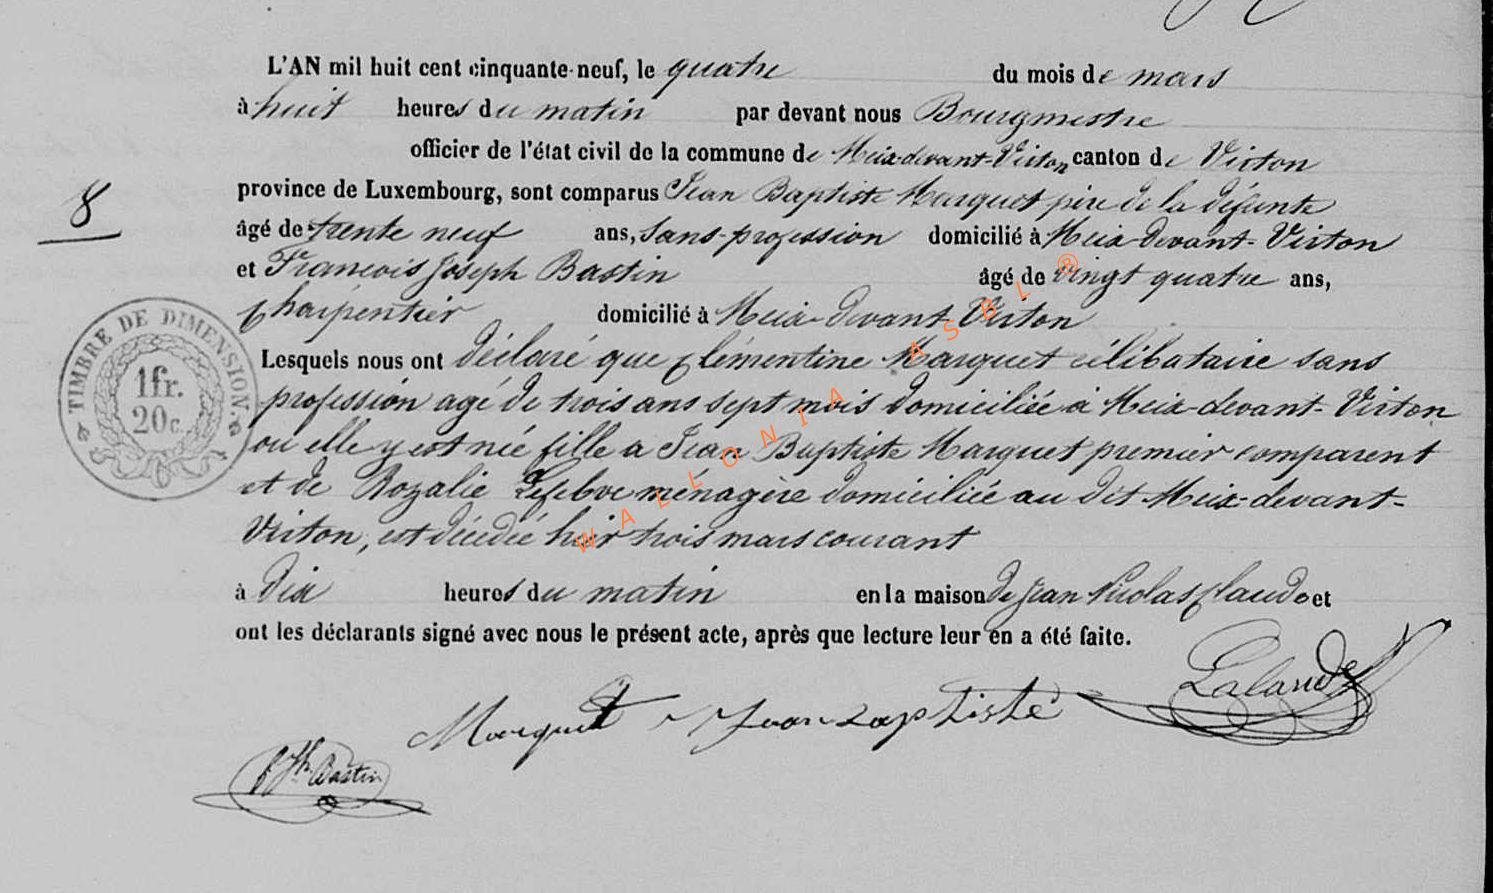 L'AN mil huit cent cinquante-neuf, le quatre du mois de mars
à huit heures du matin par devant nous Bourgmestre
officier de l'état civil de la commune de Meix-devant-Virton canton de Virton
8
province de Luxembourg, sont comparus Jean Baptiste Marquet père de la défunte
âgé de trente neuf ans, sans profession domicilié à Meix-devant-Virton
et Francois Joseph Bastin âgé de vingt quatre ans,
Charpentier domicilié à Meix-devant-Virton
Lesquels nous ont déclaré que Clémentine Marquet célibataire sans
profession agé de trois ans sept mois domiciliée à Meix-devant-Virton
ou elle y est née fille a Jean Baptiste Marquet premier comparent
et de Rozalie Lefebvre ménagère domiciliée au dit Meix-devant-
Virton, est décédée hier trois mars courant
à dix heures du matin en la maison de Jean Nicolas Claude et
ont les déclarants signé avec nous le présent acte, après que lecture leur en a été faite.
TIMBRE DE DIMENSION.
1fr.
20c.
Lalande
Marquet Jean baptiste
f Jh Bastin
WALLONIA ASBL ®